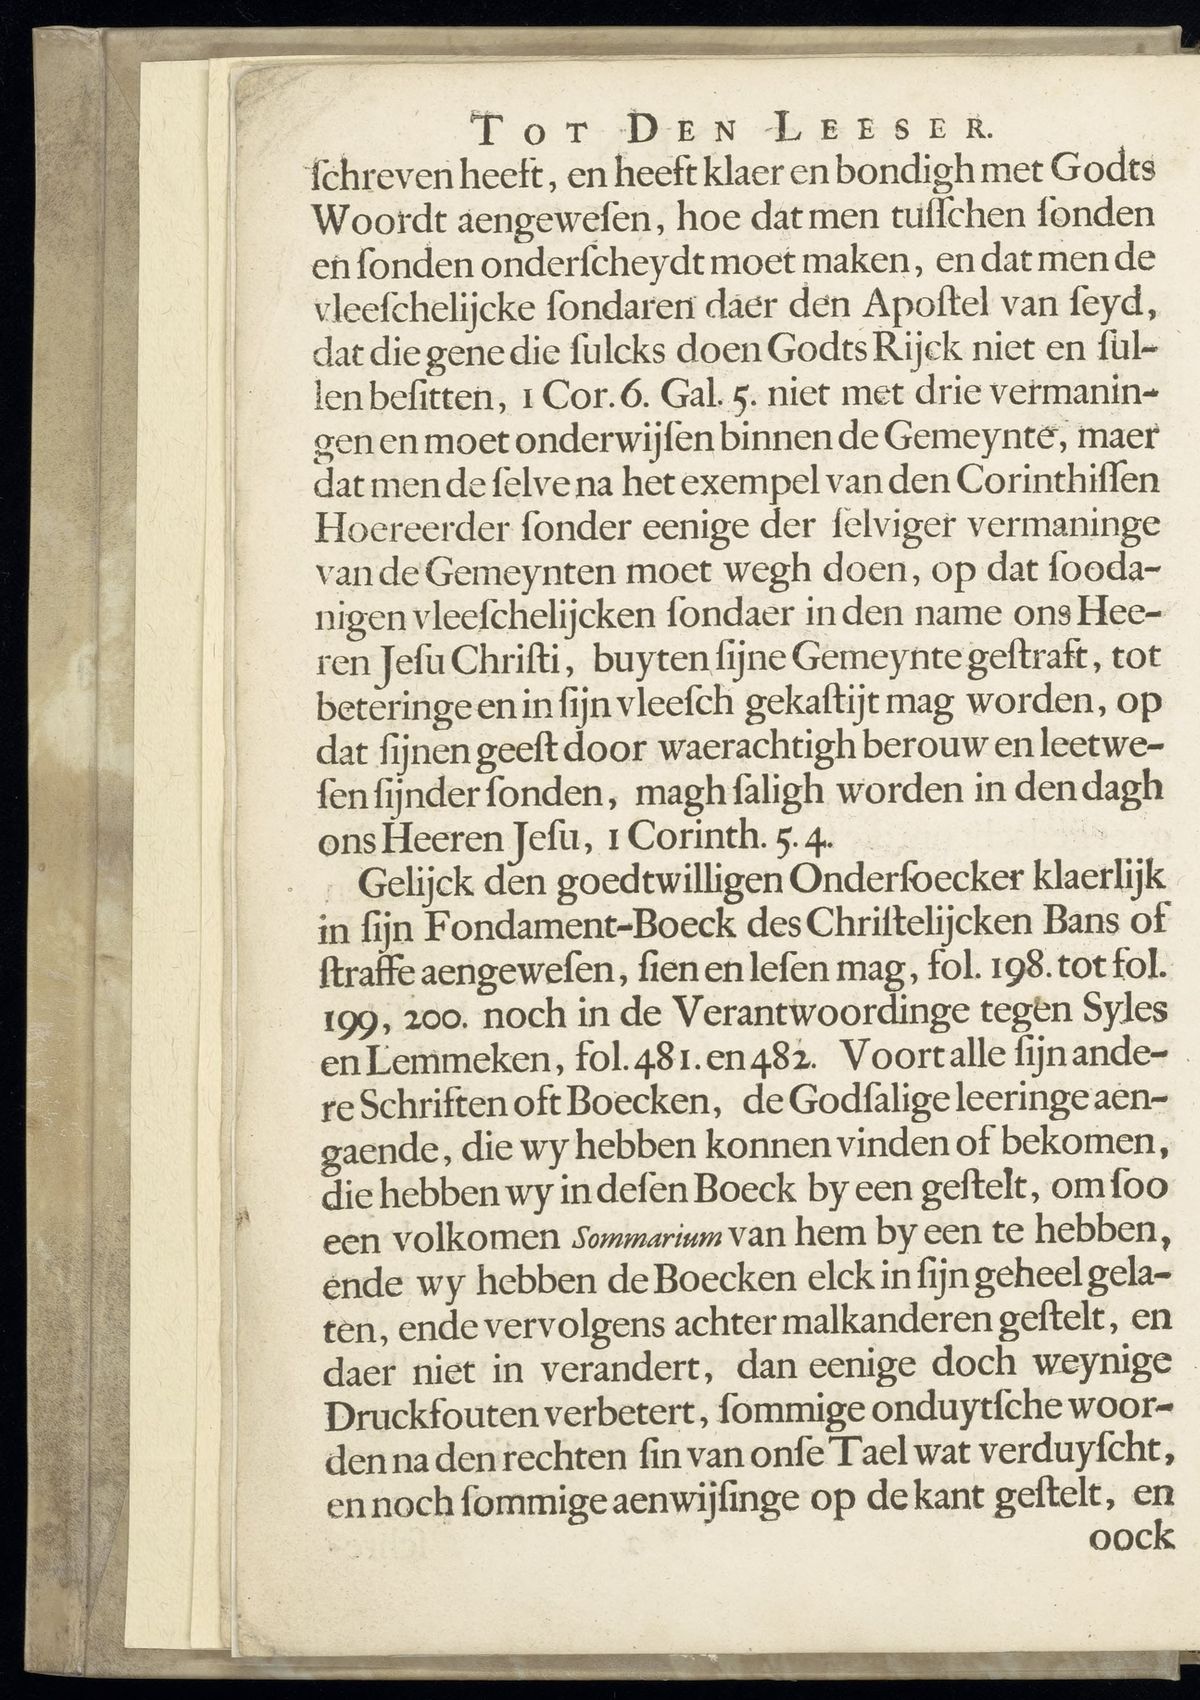 TOT DEN LEESER.
ſchreven heeft, en heeft klaer en bondigh met Godts
Woordt aengeweſen, hoe dat men tuſſchen ſonden
en ſonden onderſcheydt moet maken, en dat men de
vleeſchelijcke ſondaren daer den Apoſtel van ſeyd,
dat die gene die ſulcks doen Godts Rijck niet en ſul-
len beſitten, 1 Cor. 6. Gal. 5. niet met drie vermanin-
gen en moet onderwijſen binnen de Gemeynte, maer
dat men de ſelve na het exempel van den Corinthiſſen
Hoereerder ſonder eenige der ſelviger vermaninge
van de Gemeynten moet wegh doen, op dat ſooda-
nigen vleeſchelijcken ſondaer in den name ons Hee-
ren Jeſu Chriſti, buyten ſijne Gemeynte geſtraft, tot
beteringe en in ſijn vleeſch gekaſtijt mag worden, op
dat ſijnen geeſt door waerachtigh berouw en leetwe-
ſen ſijnder ſonden, magh ſaligh worden in den dagh
ons Heeren Jeſu, 1 Corinth. 5. 4.
Gelijck den goedtwilligen Onderſoecker klaerlijk
in ſijn Fondament-Boeck des Chriſtelijcken Bans of
ſtraffe aengeweſen, ſien en leſen mag, fol. 198. tot fol.
199, 200. noch in de Verantwoordinge tegen Syles
en Lemmeken, fol. 481. en 482. Voort alle ſijn ande-
re Schriften oft Boecken, de Godſalige leeringe aen-
gaende, die wy hebben konnen vinden of bekomen,
die hebben wy in deſen Boeck by een geſtelt, om ſoo
een volkomen Sommarium van hem by een te hebben,
ende wy hebben de Boecken elck in ſijn geheel gela-
ten, ende vervolgens achter malkanderen geſtelt, en
daer niet in verandert, dan eenige doch weynige
Druckfouten verbetert, ſommige onduytſche woor-
den na den rechten ſin van onſe Tael wat verduyſcht,
en noch ſommige aenwijſinge op de kant geſtelt, en
oock